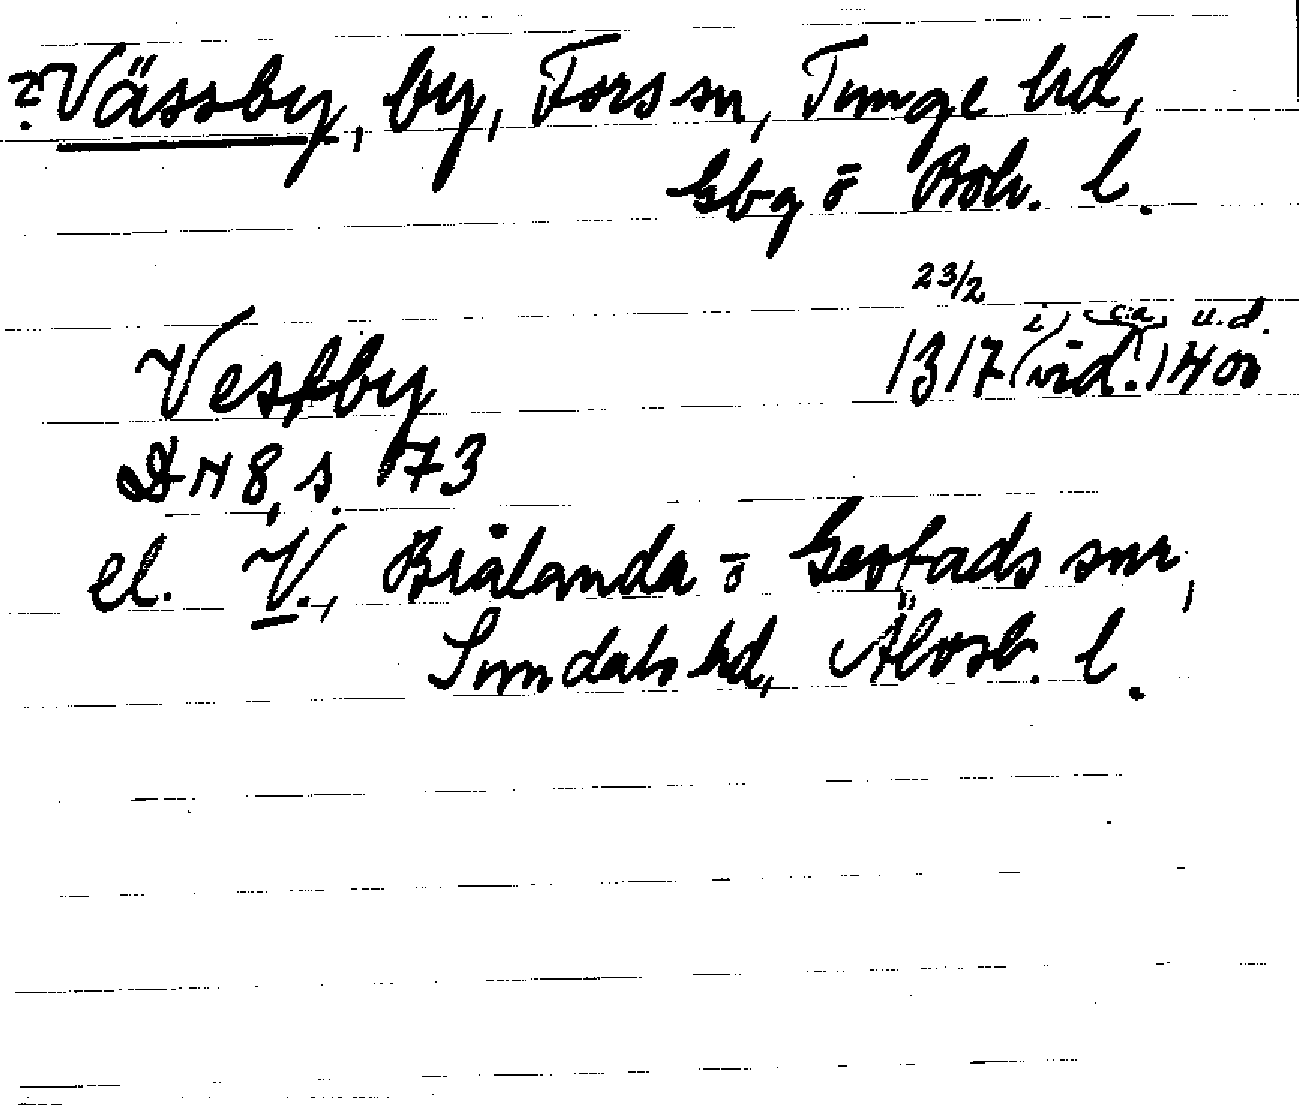 ? Vässby, by, Fors sn, Tunge hd,
Gbg o Boh. l.
23/2
Vestby 1317 (i vid.) ca 1400 u.d.
DN 8, s. 73
el. V., Brålanda o Gestads snr,
Sundals hd, Älvsb. l.